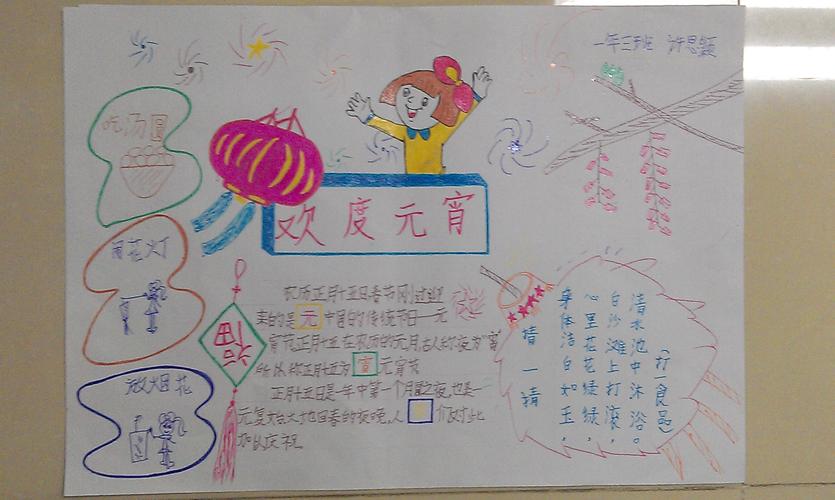 一年三班 许思颖
吃汤圆
闹花灯
放烟花
欢度元宵
福
农历正月十五日春节刚过迎
来的是元中国的传统节日—元
宵节正月十五在农历的元月古人称夜为"宵
所以称正月十五为宵元宵节
正月十五日是一年中第一个月圆之夜,也是一
元复大地回春的夜晚,人们对此
加以庆祝
(打一食品)
清水池中沐浴。
白沙滩上打滚,
心里花花绿绿,
身体洁白如玉,
猜一猜